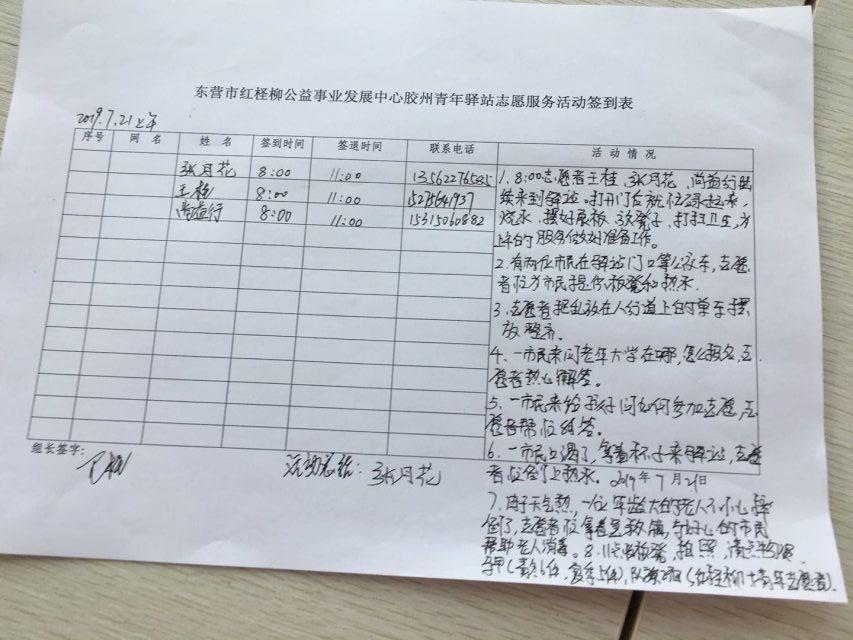 东营市红柽柳公益事业发展中心胶州青年驿站志愿服务活动签到表
2019.7.21上午
序号 网 名 姓 名 签到时间 签退时间 联系电话 活 动 情 况
张月花 8:00 11:00
王桂 8:00 11:00
尚益行 8:00 11:00 15315060882
1. 8:00志愿者王桂、张月花、尚益行陆
续来到驿站。打开门后就忙碌起来,
烧水、摆好展板、放凳子、打扫卫生,为
上午的服务做好准备工作。
2. 有两位市民在驿站门口等公交车,志愿
者忙为市民提供板凳和热水.
3. 志愿者把乱放在人行道上的单车摆
放整齐。
4. 一市民来问老年大学在哪,怎么报名,志
愿者热心解答。
5. 一市民来给孩子问如何参加志愿,志
愿者帮忙解答。
6. 一市民口渴了,拿着杯子来驿站,志愿
者忙倒上热水。2019年7月21日
7. 由于天气热,一位年龄大的老人不小心摔
倒了,志愿者忙拿着急救箱,与好心的市民
帮助老人消毒。8. 11点收板凳,拍照,清点物品.
组长签字: 王桂
活动总结: 张月花